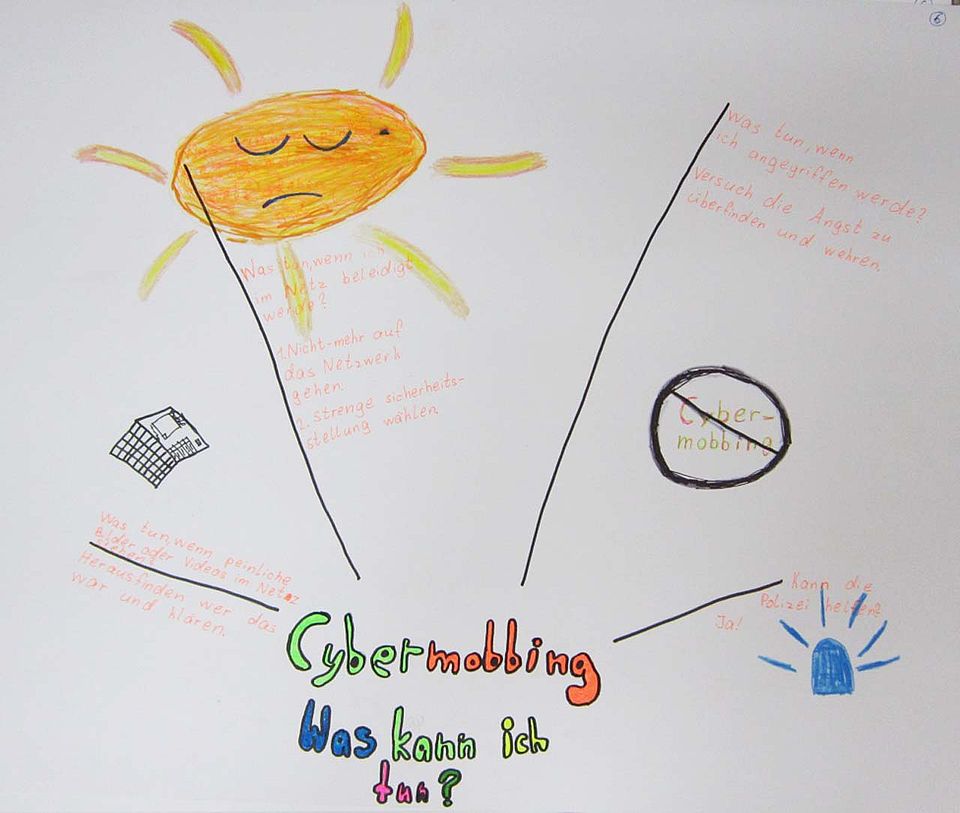 6
Was tun, wenn ich
im Netz beleidigt
werde?
1. Nicht-mehr auf
das Netzwerk
gehen.
2. strenge sicherheits-
stellung wählen.
Was tun, wenn
ich angegriffen werde?
Versuch die Angst zu
überfinden und wehren.
Cyber-
mobbing
Was tun, wenn peinliche
Bilder oder Videos im Netz
stehen?
Herausfinden wer das
war und klären.
Kann die
Polizei helfen?
Ja!
Cybermobbing
Was kann ich
tun?